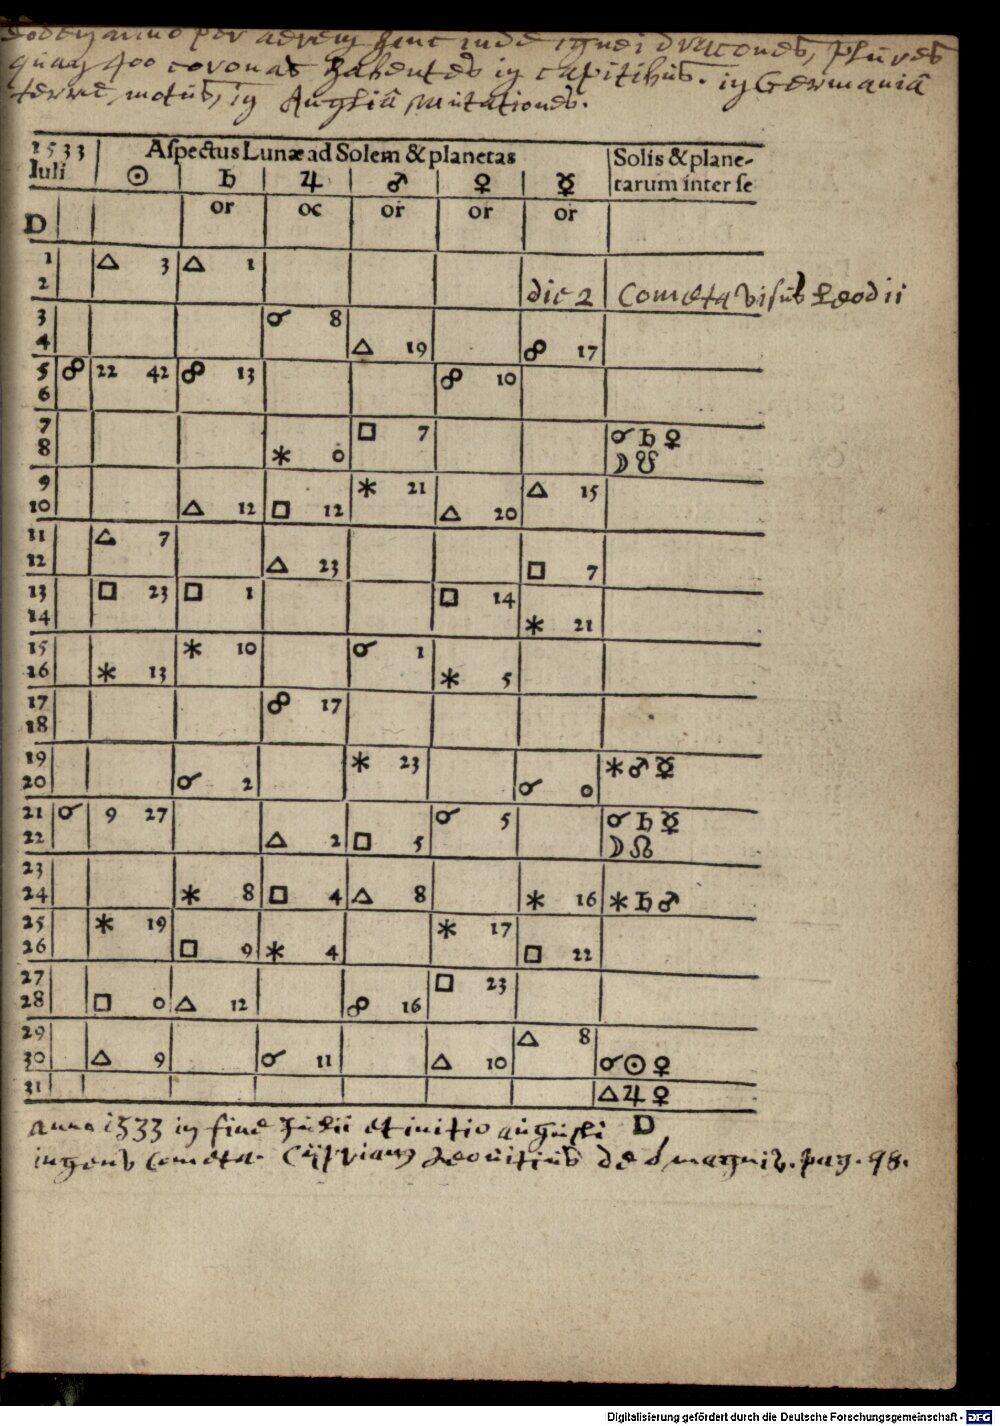 eodem anno per aerem hinc inde ignei dracones, plures
quam 400 coronas habentes in capitibus. in Germaniâ
terrę motus, in Angliâ mutationes.
1533 Aſpectus Lunæ ad Solem & planetas Solis & plane-
Iuli ☉ ♄ ♃ ♂ ♀ ☿ tarum inter ſe
D or oc or or or
1 △ 3 △ 1
2 die 2 Cometa visus Leodii
3 ☌ 8
4 △ 19 ☍ 17
5 ☍ 22 42 ☍ 13 ☍ 10
6
7 □ 7 ☌ ♄ ♀
8 ⚹ 0 ☽ ☋
9 ⚹ 21 △ 15
10 △ 12 □ 12 △ 20
11 △ 7
12 △ 23 □ 7
13 □ 23 □ 1 □ 14
14 ⚹ 21
15 ⚹ 10 ☌ 1
16 ⚹ 13 ⚹ 5
17 ☍ 17
18
19 ⚹ 23 ⚹ ♂ ☿
20 ☌ 2 ☌ 0
21 ☌ 9 27 ☌ 5 ☌ ♄ ☿
22 △ 2 □ 5 ☽ ☊
23
24 ⚹ 8 □ 4 △ 8 ⚹ 16 ⚹ ♄ ♂
25 ⚹ 19 ⚹ 17
26 □ 9 ⚹ 4 □ 22
27 □ 23
28 □ 0 △ 12 ☍ 16
29 △ 8
30 △ 9 ☌ 11 △ 10 ☌ ☉ ♀
31 △ ♃ ♀
D
anno 1533 in fine Julii et initio augusti
ingens Cometa. Cyprianus Leouitius de ☌ magnis. pag. 98.
Digitalisierung gefördert durch die Deutsche Forschungsgemeinschaft - DFG